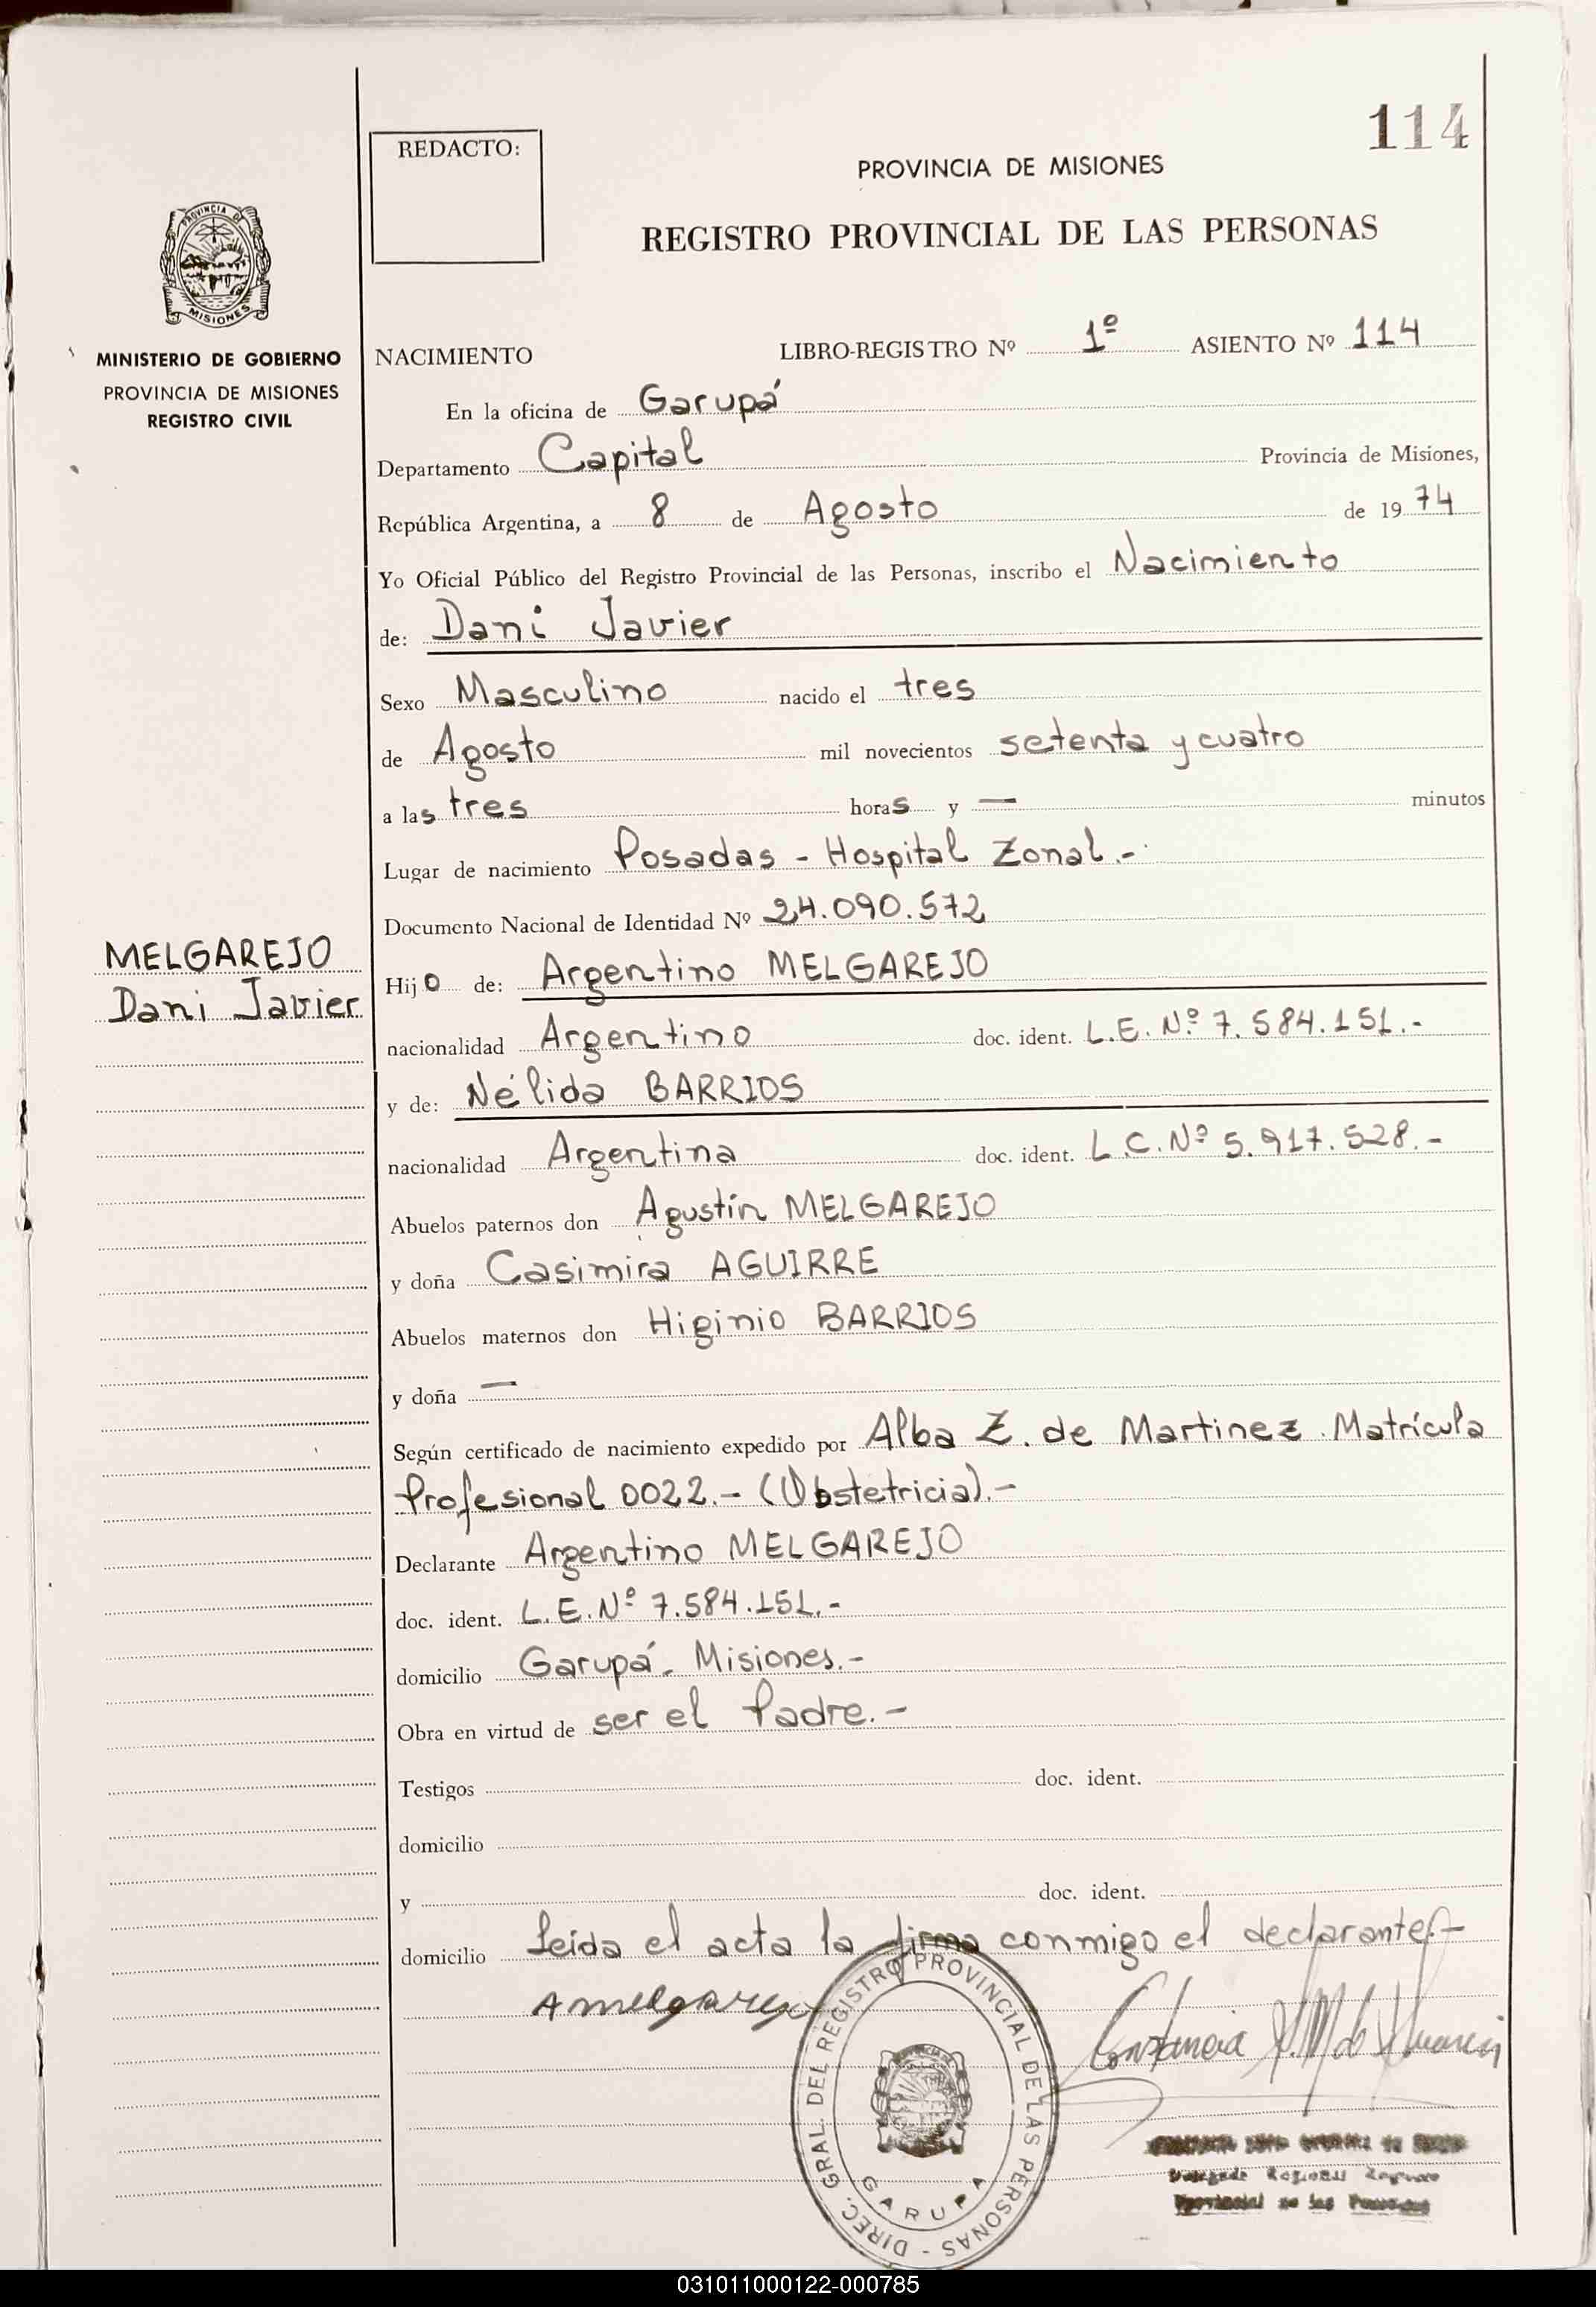 114
REDACTO:
PROVINCIA DE MISIONES
REGISTRO PROVINCIAL DE LAS PERSONAS
PROVINCIA DE
MISIONES
MINISTERIO DE GOBIERNO
PROVINCIA DE MISIONES
REGISTRO CIVIL
NACIMIENTO LIBRO-REGISTRO Nº 1º ASIENTO Nº 114
En la oficina de Garupá
Departamento Capital Provincia de Misiones,
República Argentina, a 8 de Agosto de 1974
Yo Oficial Público del Registro Provincial de las Personas, inscribo el Nacimiento
de: Dani Javier
Sexo Masculino nacido el tres
de Agosto mil novecientos setenta y cuatro
a las tres horas y — minutos
Lugar de nacimiento Posadas - Hospital Zonal.-
Documento Nacional de Identidad Nº 24.090.572
MELGAREJO
Dani Javier
Hijo de: Argentino MELGAREJO
nacionalidad Argentino doc. ident. L.E. Nº 7.584.151.-
y de: Nélida BARRIOS
nacionalidad Argentina doc. ident. L.C. Nº 5.917.528.-
Abuelos paternos don Agustín MELGAREJO
y doña Casimira AGUIRRE
Abuelos maternos don Higinio BARRIOS
y doña —
Según certificado de nacimiento expedido por Alba Z. de Martinez Matrícula
Profesional 0022.- (Obstetricia).-
Declarante Argentino MELGAREJO
doc. ident. L.E. Nº 7.584.151.-
domicilio Garupá - Misiones.-
Obra en virtud de ser el Padre.-
Testigos doc. ident.
domicilio
y doc. ident.
domicilio Leída el acta la firma conmigo el declarante.-
A melgarejo
Constancia
DIREC. GRAL. DEL REGISTRO PROVINCIAL DE LAS PERSONAS -
GARUPA
Provincial de las Personas
031011000122-000785